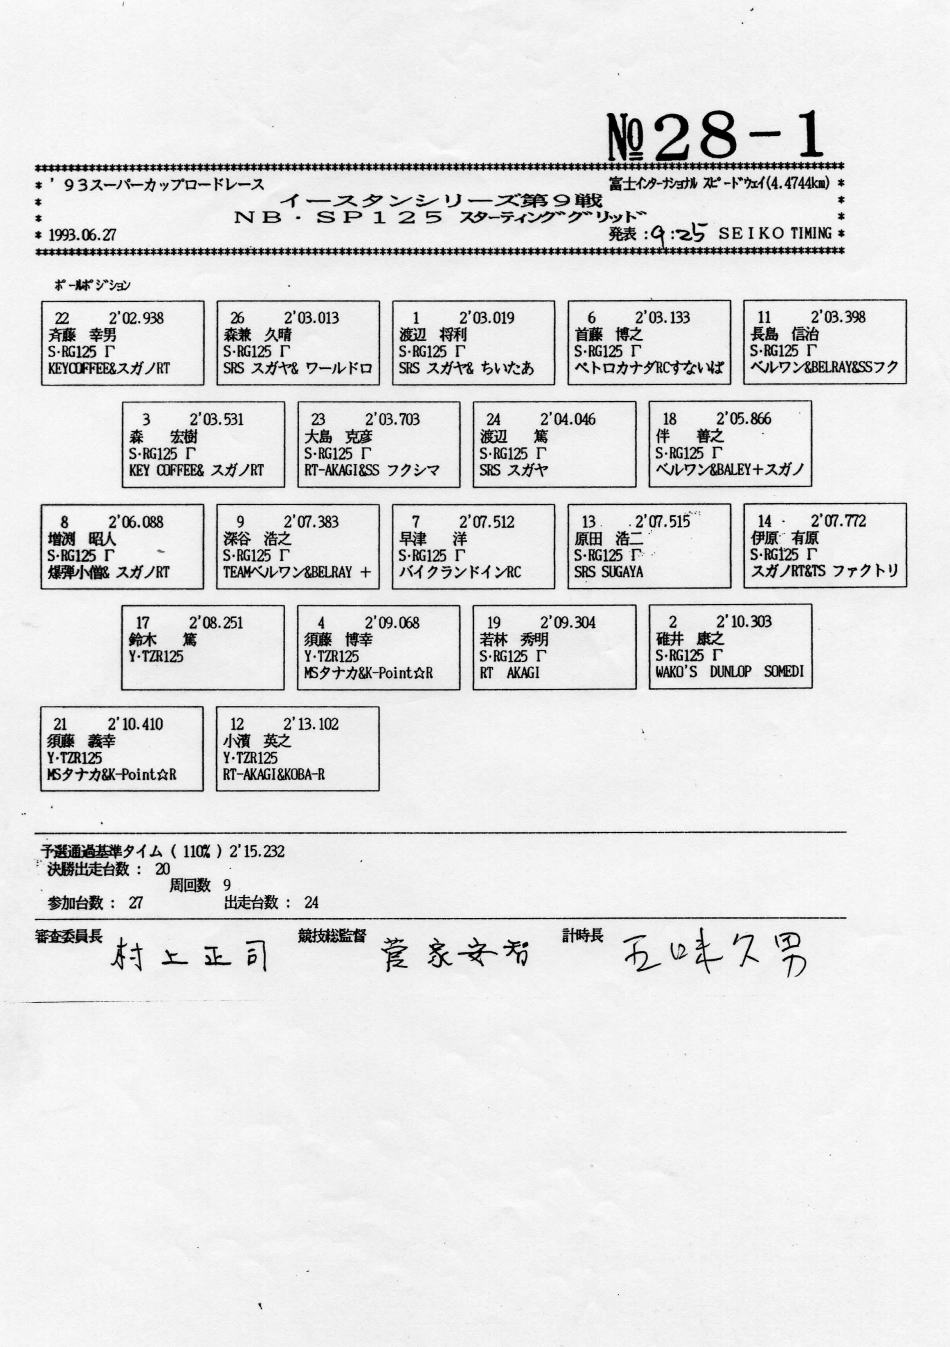 №28-1
'93スーパーカップロードレース 富士インターナショナル スピードウェイ(4.4744km)
イースタンシリーズ第9戦
NB・SP125 スターティンググリッド
1993.06.27 発表:9:25 SEIKO TIMING
ポールポジション
22 2'02.938
斉藤 幸男
S·RG125 Γ
KEYCOFFEE&スガノRT
26 2'03.013
森兼 久晴
S·RG125 Γ
SRS スガヤ& ワールドロ
1 2'03.019
渡辺 将利
S·RG125 Γ
SRS スガヤ& ちいたあ
6 2'03.133
首藤 博之
S·RG125 Γ
ペトロカナダRCすないぱ
11 2'03.398
長島 信治
S·RG125 Γ
ベルワン&BELRAY&SSフク
3 2'03.531
森 宏樹
S·RG125 Γ
KEY COFFEE& スガノRT
23 2'03.703
大島 克彦
S·RG125 Γ
RT-AKAGI&SS フクシマ
24 2'04.046
渡辺 篤
S·RG125 Γ
SRS スガヤ
18 2'05.866
伴 善之
S·RG125 Γ
ベルワン&BALEY+スガノ
8 2'06.088
増渕 昭人
S·RG125 Γ
爆弾小僧& スガノRT
9 2'07.383
深谷 浩之
S·RG125 Γ
TEAMベルワン&BELRAY +
7 2'07.512
早津 洋
S·RG125 Γ
バイクランドインRC
13 2'07.515
原田 浩二
S·RG125 Γ
SRS SUGAYA
14 2'07.772
伊原 有原
S·RG125 Γ
スガノRT&TS ファクトリ
17 2'08.251
鈴木 篤
Y·TZR125
4 2'09.068
須藤 博幸
Y·TZR125
MSタナカ&K-Point☆R
19 2'09.304
若林 秀明
S·RG125 Γ
RT AKAGI
2 2'10.303
碓井 康之
S·RG125 Γ
WAKO'S DUNLOP SOMEDI
21 2'10.410
須藤 義幸
Y·TZR125
MSタナカ&K-Point☆R
12 2'13.102
小濱 英之
Y·TZR125
RT-AKAGI&KOBA-R
予選通過基準タイム ( 110% ) 2'15.232
決勝出走台数 : 20
周回数 9
参加台数 : 27 出走台数 : 24
審査委員長 村上正司 競技総監督 菅家安智 計時長 五味久男